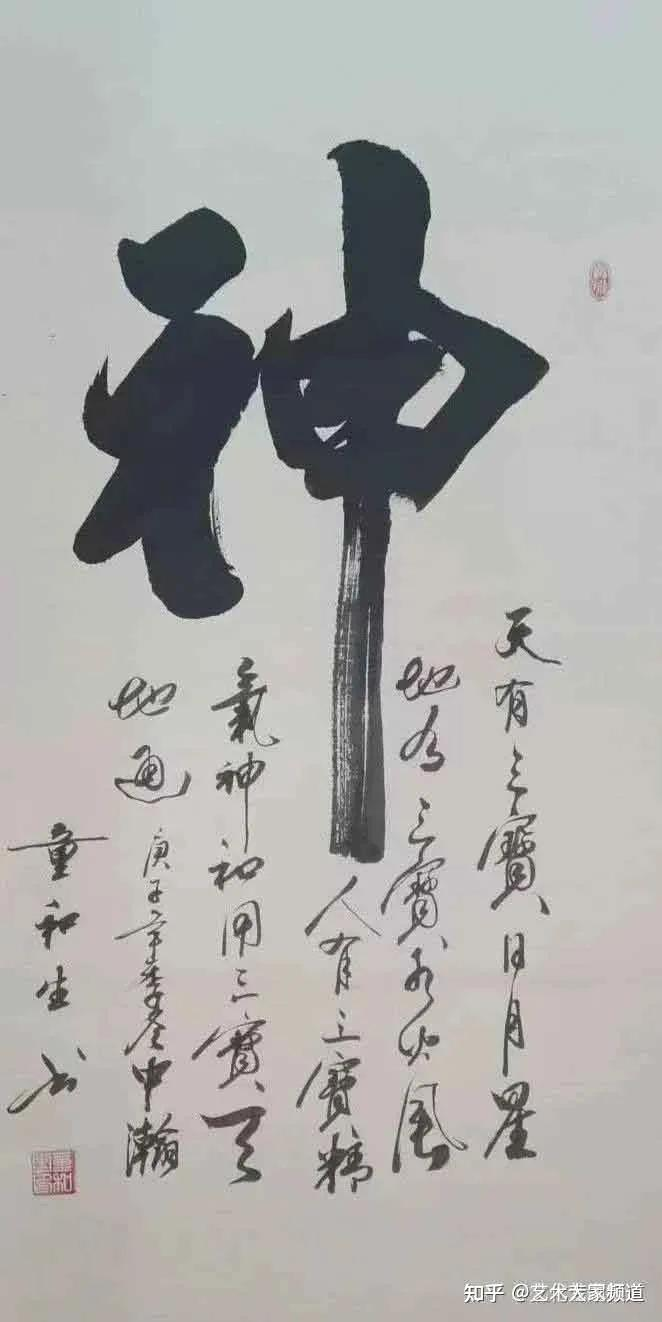 神
天有三寶日月星
地有三寶水火風
人有三寶精
氣神和用三寶天
地通 庚子 中瀚
童和生书
知乎 @艺术大家频道